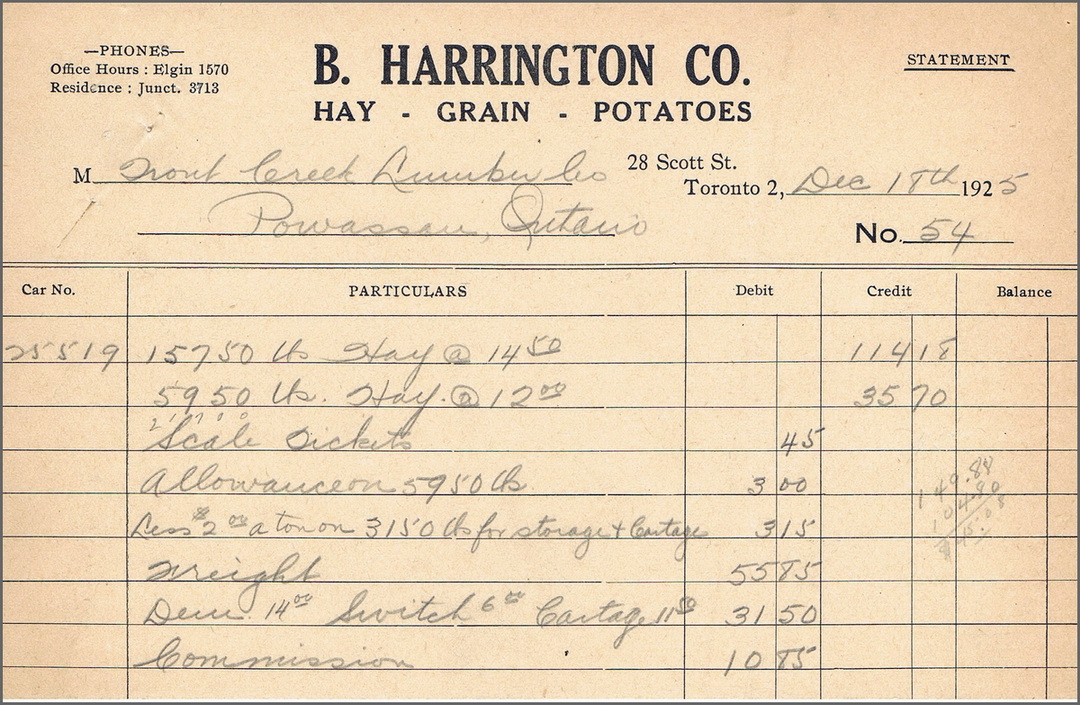 —PHONES—
Office Hours : Elgin 1570
Residence : Junct. 3713
B. HARRINGTON CO.
HAY - GRAIN - POTATOES
STATEMENT
M Trout Creek Lumber Co
28 Scott St.
Toronto 2, Dec 18th 1925
Powassan, Ontario
No. 54
Car No. PARTICULARS Debit Credit Balance
25519 15750 lbs Hay @ 14 50 114 18
5950 lbs. Hay. @ 12 00 35 70
21700
Scale Tickets 45
Allowance on 5950 lbs 3 00
149.88
Less $2 00 a ton on 3150 lbs for storage & Cartage 3 15
Freight 55 85
Dem. 14 00 Switch 6 00 Cartage 11 50 31 50
Commission 10 85